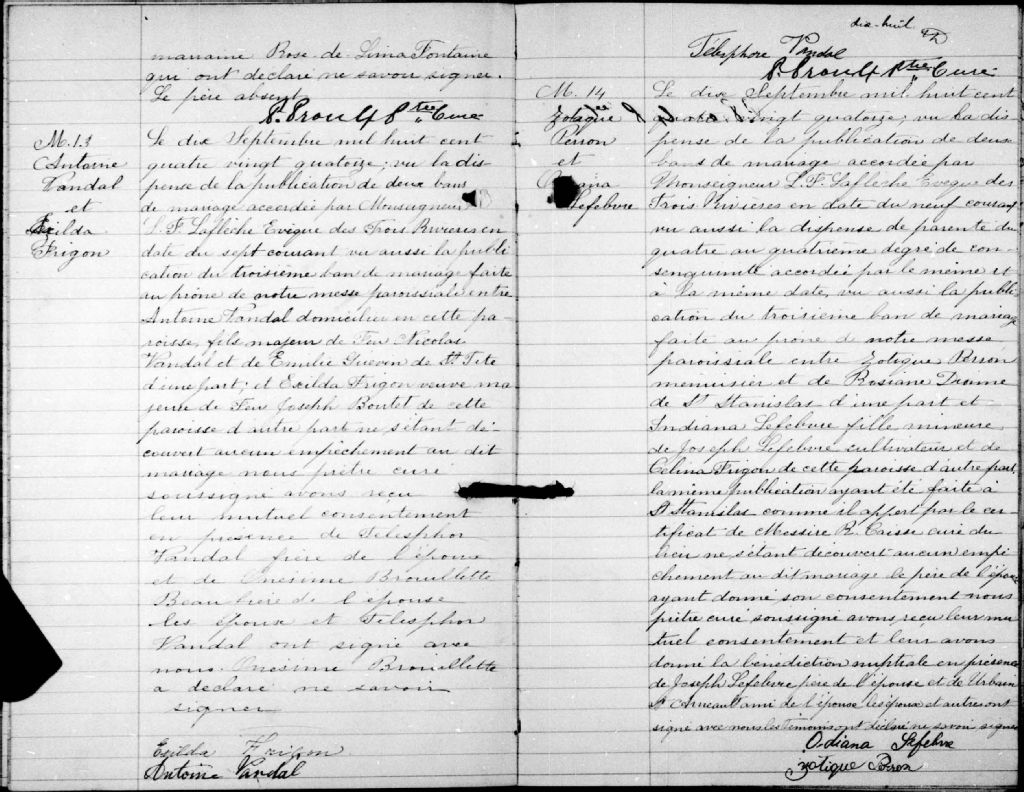 marraine Rose-de-Lima Fontaine
qui ont déclaré ne savoir signer.
Le père absent
P. Proulx Ptre Curé
M. 13
Antoine
Vandal
et
Exilda
Frigon
Le dix Septembre mil huit cent
quatre vingt quatorze; vu la dis-
pense de la publication de deux bans
de mariage accordée par Monseigneur
L. F. Laflèche Evêque des Trois Rivieres en
date du sept courant vu aussi la publi
cation du troisieme ban de mariage faite
au prône de notre messe paroissiale entre
Antoine Vandal domicilié en cette pa-
roisse, fils majeur de Feu Nicolas
Vandal et de Emilie de St Tite
d'une part; et Exilda Frigon veuve ma
jeure de Feu Joseph Boutet de cette
paroisse d'autre part ne s'étant dé-
couvert aucun empêchement au dit
mariage nous prêtre curé
soussigné avons reçu
leur mutuel consentement
en présence de Telesphor
Vandal frère de l'époux
et de Onésime Brouillette
Beau frère de l'épouse
les époux et Telesphor
Vandal ont signé avec
nous. Onésime Brouillette
a déclaré ne savoir
signer
Exilda Frigon
Antoine Vandal
dix-huit
Télesphore Vandal
P. Proulx Ptre Curé
M. 14
Zotique
Perron
et
Lefebvre
Le dix Septembre mil huit cent
quatre vingt quatorze; vu la dis-
pense de la publication de deux
bans de mariage accordée par
Monseigneur L. F. Laflèche Evêque des
Trois Rivières en date du neuf courant
vu aussi la dispense de parenté du
quatre au quatrième degré de con-
senguinité accordée par le même et
à la même date, vu aussi la publi-
cation du troisième ban de mariage
faite au prone de notre messe
paroisiale entre Zotique Perron
menuisier et de Rosiane
de St Stanislas d'une part et
Indiana Lefebvre fille mineure
de Joseph Lefebvre cultivateur et de
Célina Frigon de cette paroisse d'autre part,
la même publication ayant été faite à
St Stanislas comme il appert par le cer-
tificat de Messire R. Caisse curé du
lieu ne s'étant découvert aucun empê
chement au dit mariage le père de l'épouse
ayant donné son consentement nous
prêtre curé soussigné avons reçu leur mu
tuel consentement et leur avons
donné la bénédiction nuptiale en présence
de Joseph Lefebvre père de l'épouse et de Urbain
St Arneault ami de l'épouse les époux et autres ont
signé avec nous les témoins ont déclaré ne savoir signer
O-diana Lefebvre
Zotique Perron